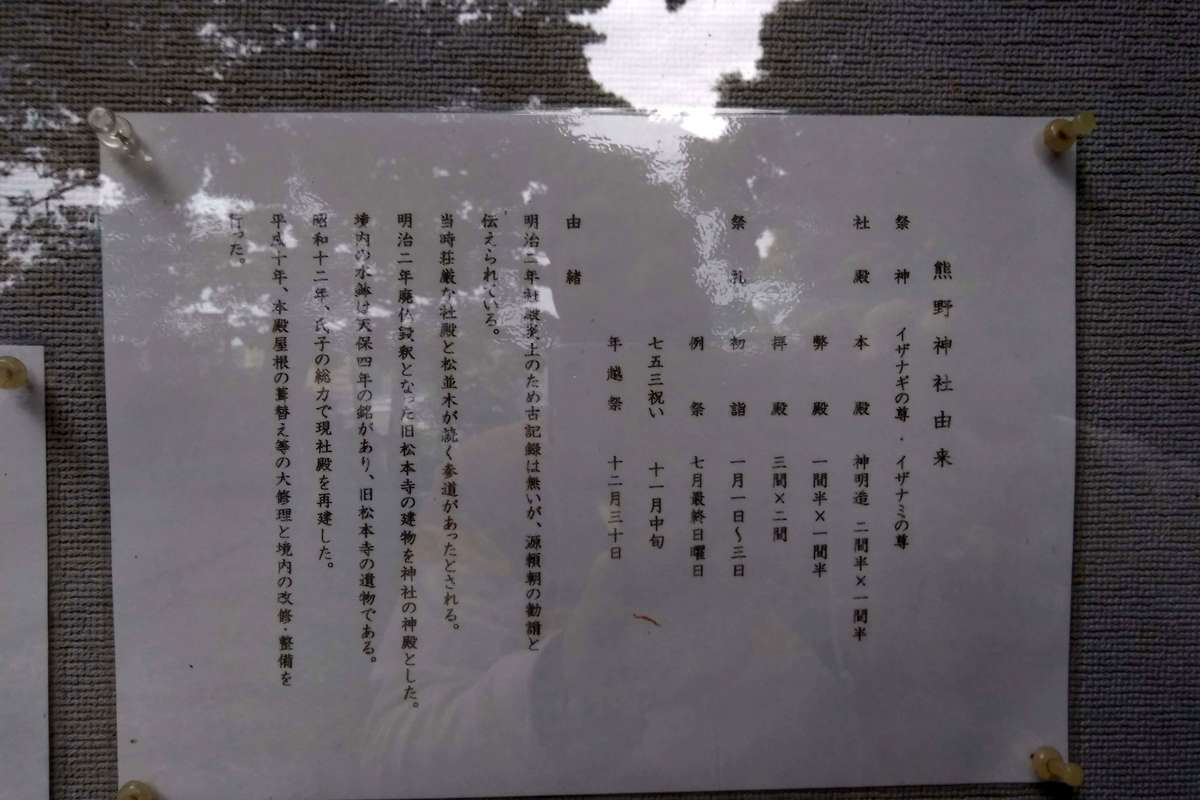 熊野神社由来
祭神 イザナギの尊・イザナミの尊
社殿 本殿 神明造 二間半×一間半
弊殿 一間半×一間半
拝殿 三間×二間
祭礼 初詣 一月一日～三日
例祭 七月最終日曜日
七五三祝い 十一月中旬
年越祭 十二月三十日
由緒
明治二年社殿炎上のため古記録は無いが、源頼朝の勧請と
伝えられている。
当時荘厳な社殿と松並木が続く参道があったとされる。
明治二年廃仏毀釈となった旧松本寺の建物を神社の神殿とした。
境内の水鉢は天保四年の銘があり、旧松本寺の遺物である。
昭和十二年、氏子の総力で現社殿を再建した。
平成十年、本殿屋根の葺替え等の大修理と境内の改修・整備を
行った。